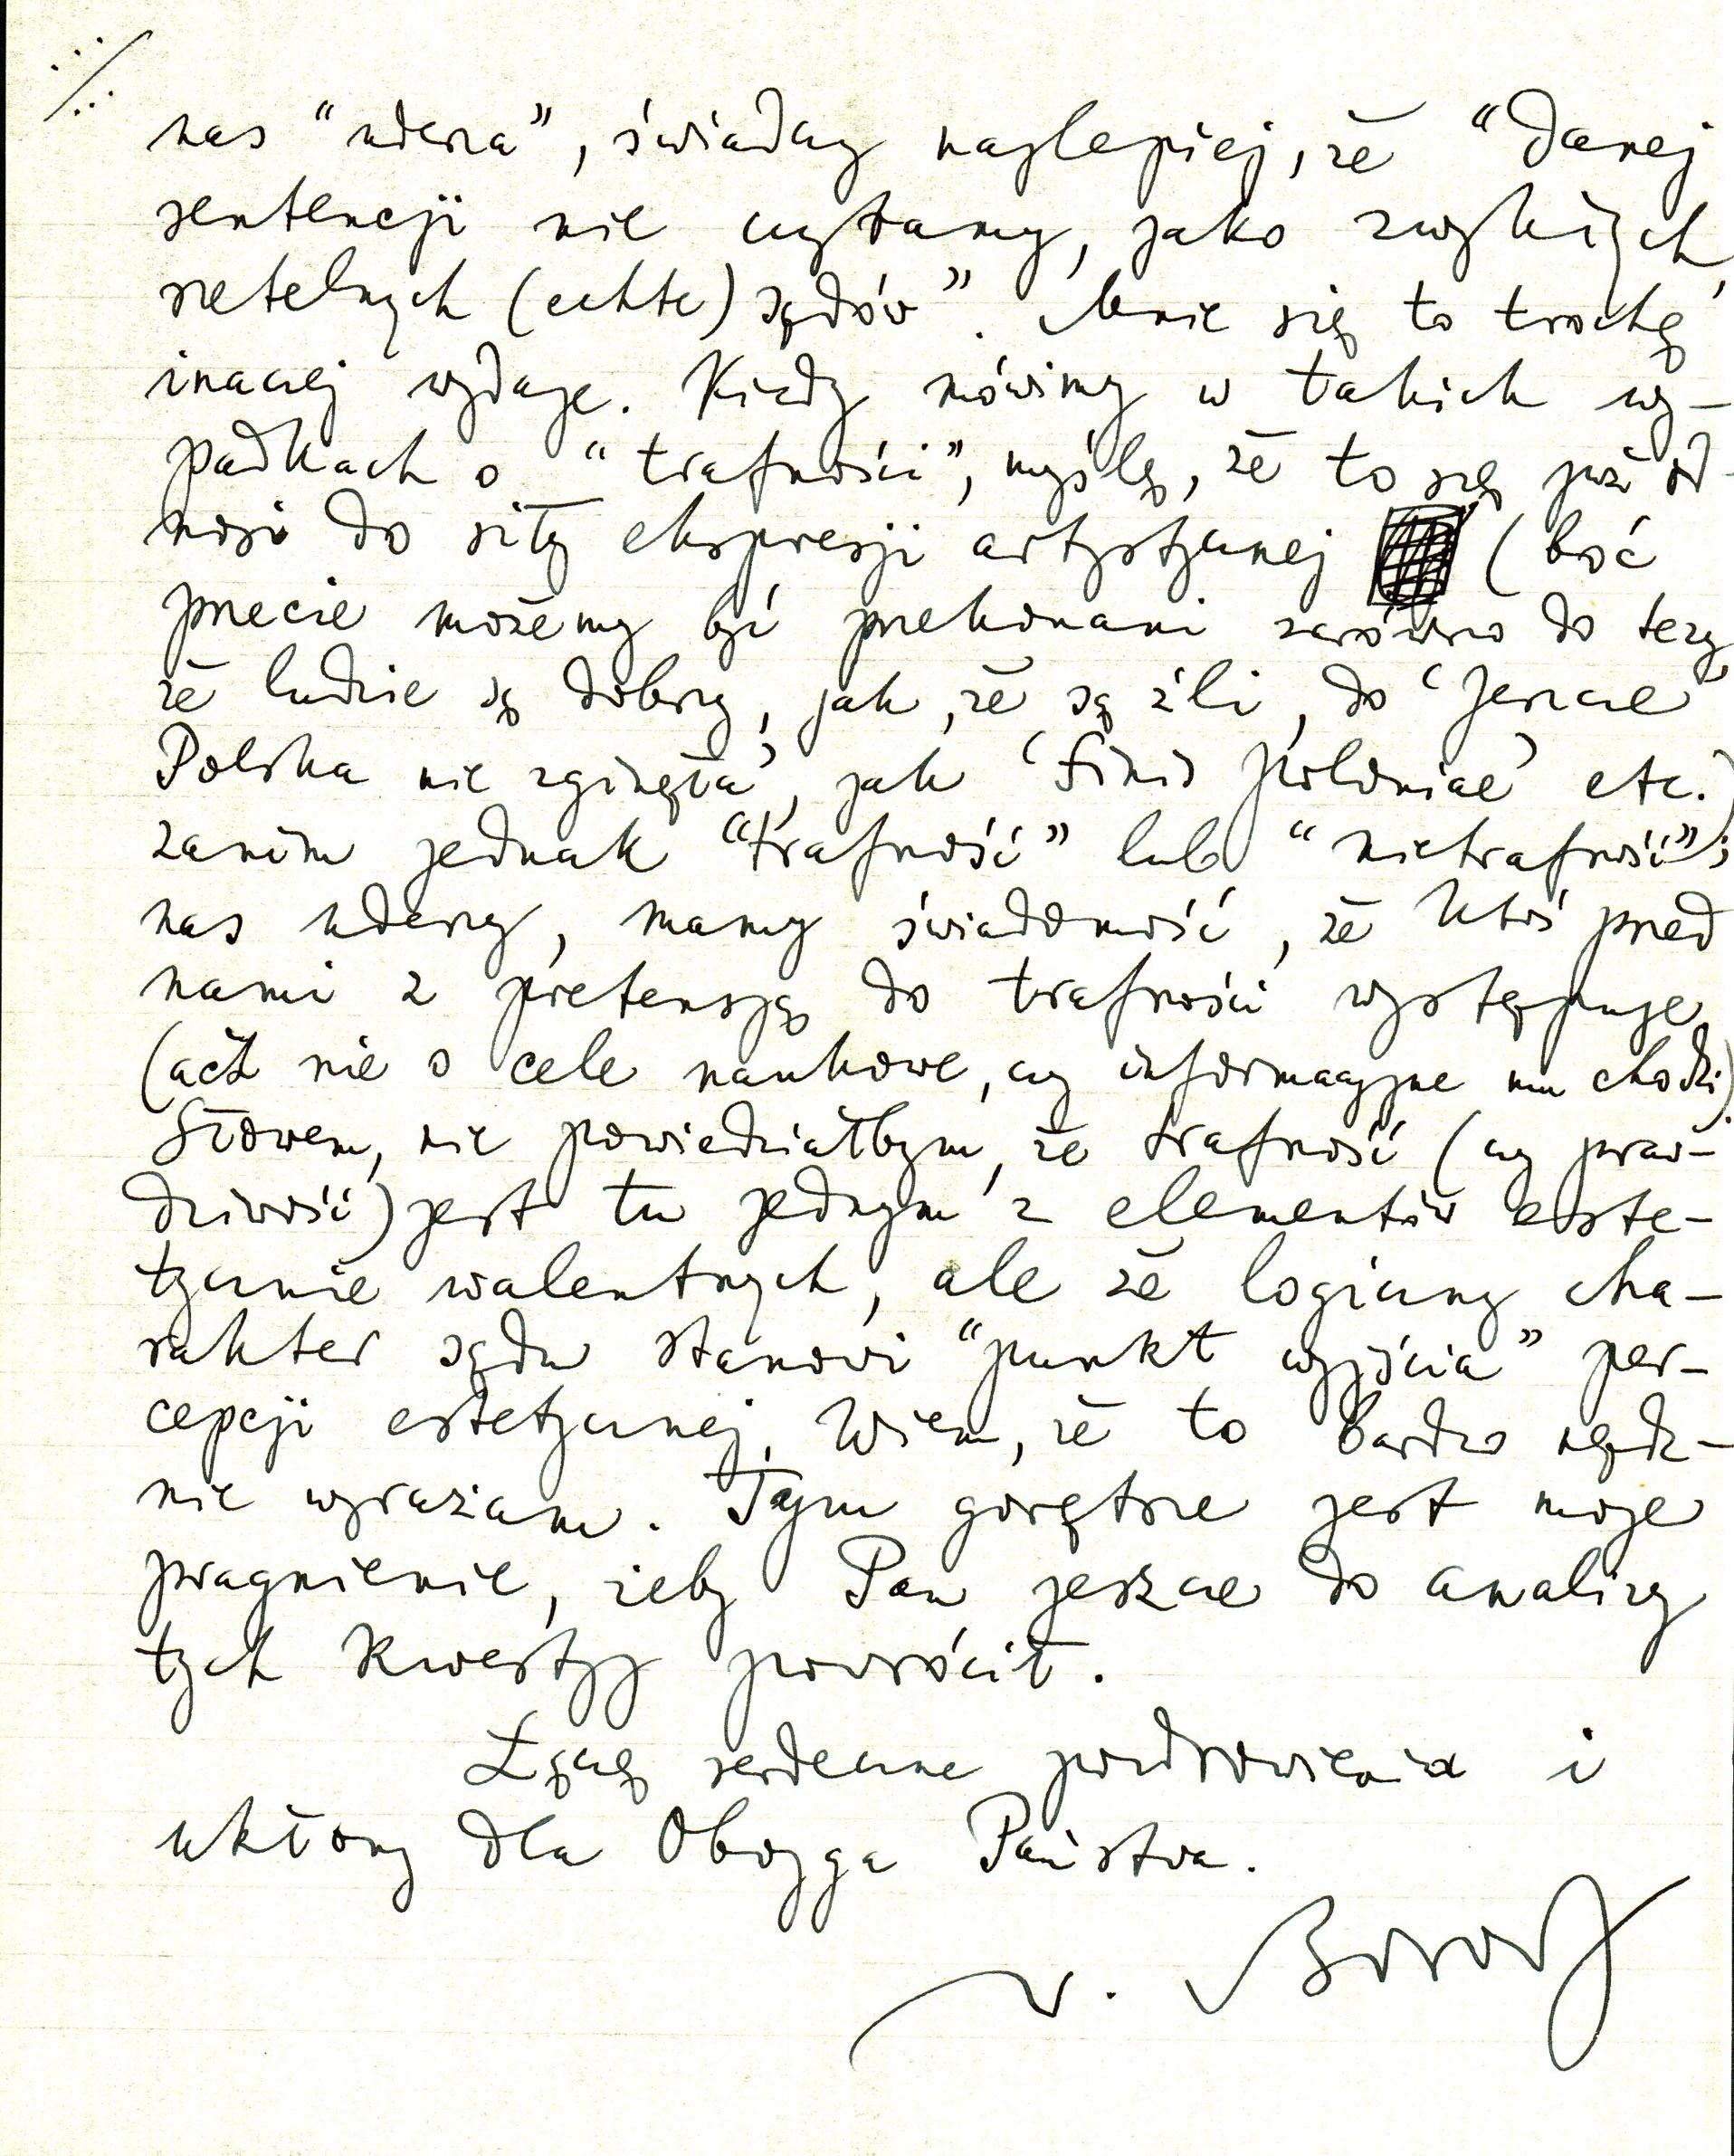 nas "uderza", świadczy najlepiej, że "danej
sentencji nie czytamy, jako zwykłych,
rzetelnych (echte) sądów". Mnie się to trochę
inaczej wydaje. Kiedy mówimy w takich wy-
padkach o "trafności", myślę, że to się już od-
nosi do siły ekspresji artystycznej (boć
przecie możemy być przekonani zarówno do tezy
że ludzie są dobrzy, jak, że są źli, do 'Jeszcze
Polska nie zginęła', jak 'finis Poloniae' etc.)
zanim jednak "trafność" lub "nietrafność"
nas uderzy, mamy świadomość, że ktoś przed
nami z pretensją do trafności występuje
(acz nie o cele naukowe, czy informacyjne mu chodzi).
Słowem, nie powiedziałbym, że trafność (czy praw-
dziwość) jest tu jednym z elementów este-
tycznie walentnych, ale że logiczny cha-
rakter sądu stanowi "punkt wyjścia" per-
cepcji estetycznej. Wiem, że to bardzo nędz-
nie wyrażam. Tym gorętsze jest moje
pragnienie, żeby Pan jeszcze do analizy
tych kwestyj powrócił.
Łączę serdeczne pozdrowienia i
ukłony dla Obojga Państwa.
W. Borowy